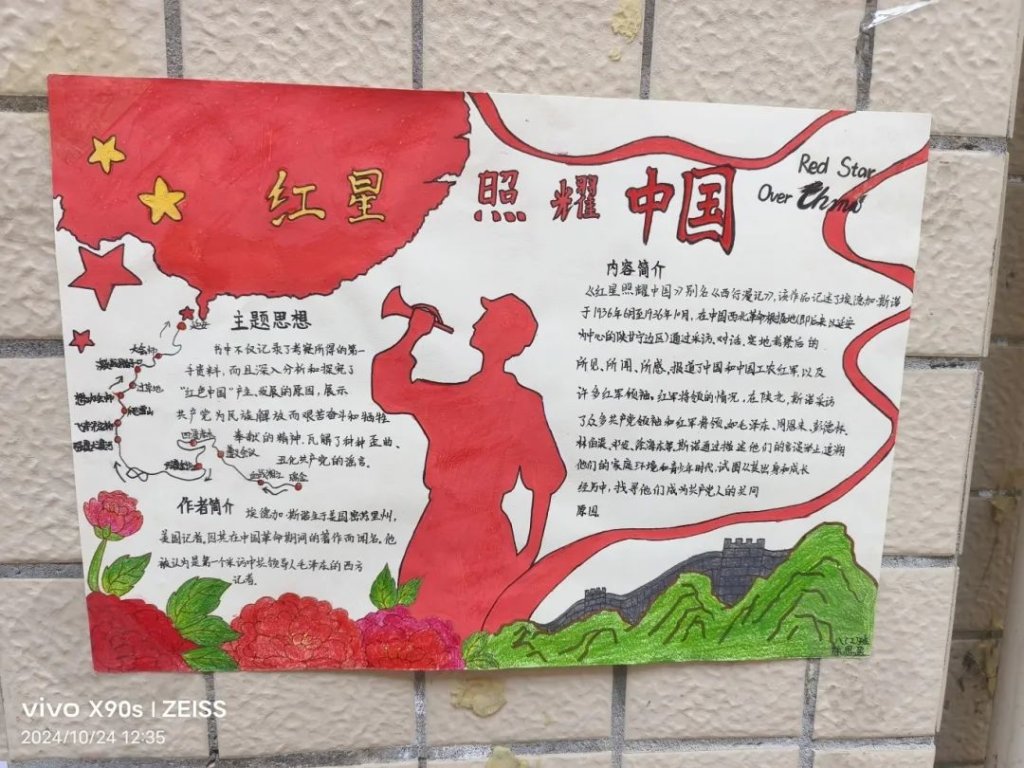 红星照耀中国
Red Star
Over China
内容简介
《红星照耀中国》别名《西行漫记》,该作品记述了埃德加·斯诺
于1936年6月至1936年10月,在中国西北革命根据地(即后来以延安
为中心的陕甘宁边区)通过采访、对话、实地考察后的
所见、所闻、所感,报道了中国和中国工农红军,以及
许多红军领袖,红军将领的情况,在陕北,斯诺采访
了众多共产党领袖和红军将领,如毛泽东、周恩来、彭德怀、
林伯渠、邓发、徐海东等,斯诺通过描述他们的言谈举止追溯
他们的家庭环境和青少年时代,试图从其出身和成长
经历中,找寻他们成为共产党人的共同
原因
主题思想
书中不仅记录了考察所得的第一
手资料,而且深入分析和探究了
"红色中国"产生、发展的原因,展示
共产党为民族解放而艰苦奋斗和牺牲
奉献的精神,瓦解了种种歪曲、
丑化共产党的谣言。
延安
过草地
遵义会议
瑞金
作者简介
埃德加·斯诺生于美国密苏里州,
美国记者,因其在中国革命期间的著作而闻名。他
被认为是第一个采访中共领导人毛泽东的西方
记者。
vivo X90s | ZEISS
2024/10/24 12:35